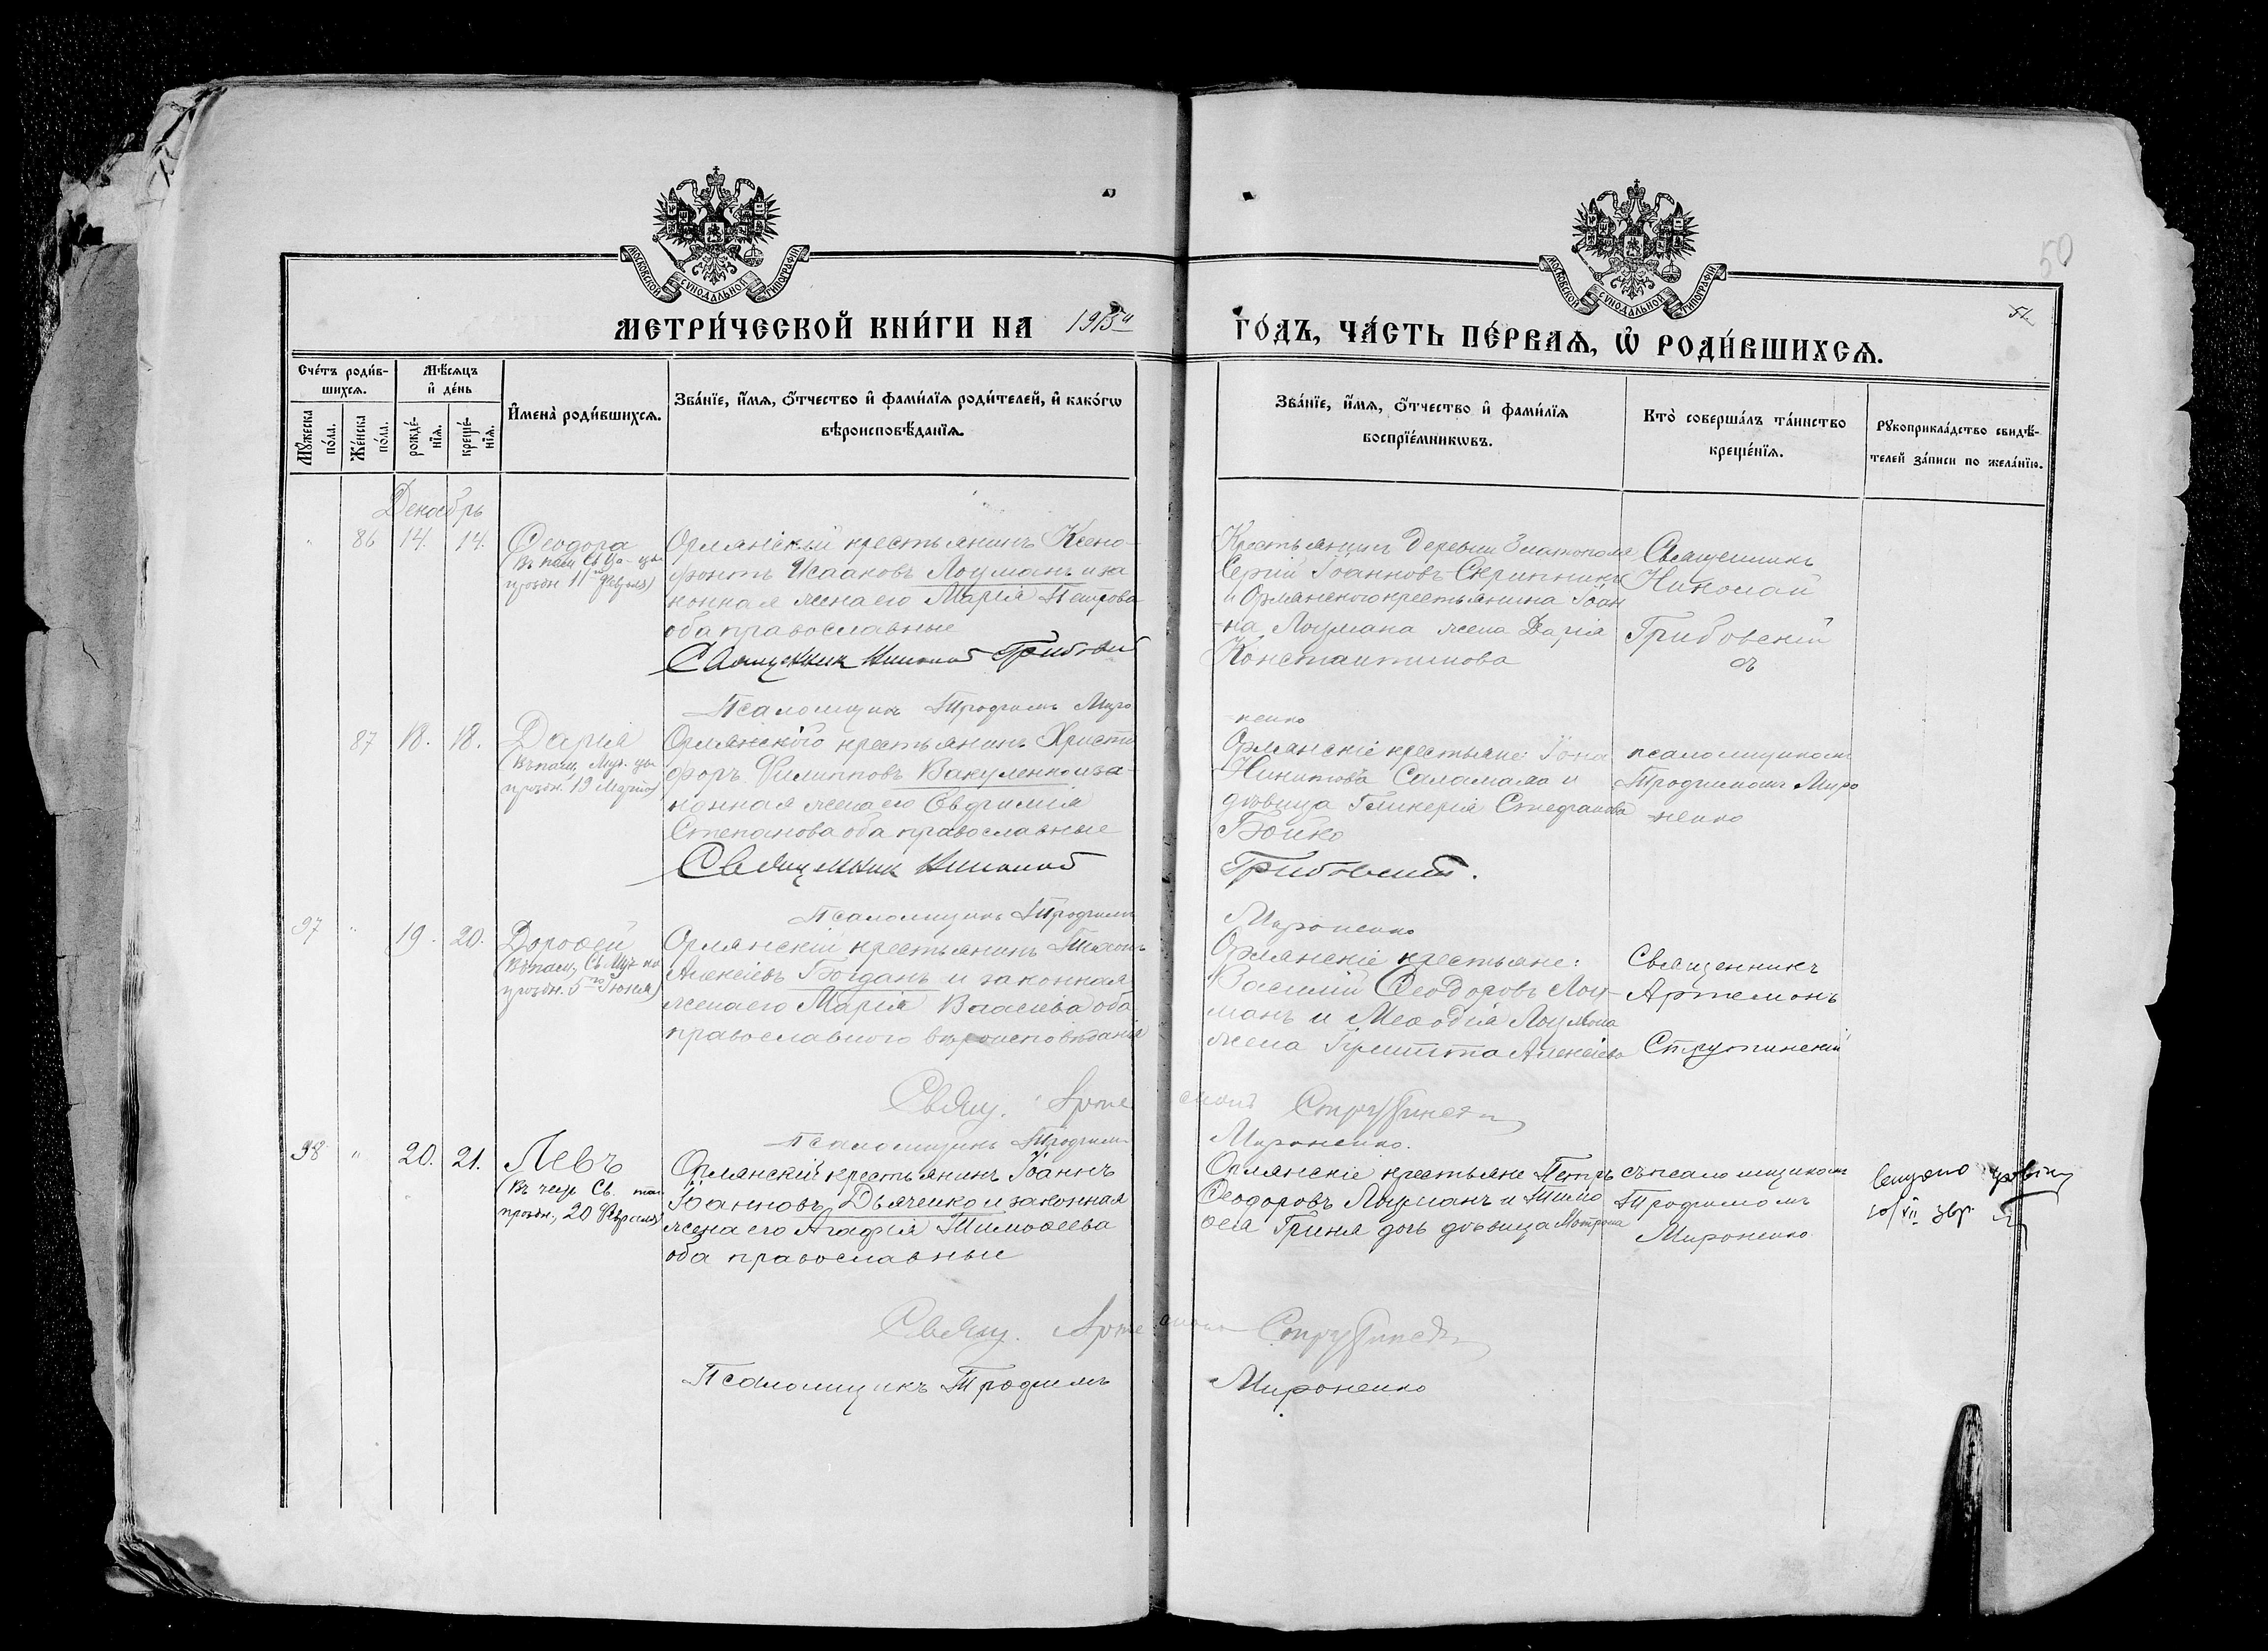 МОСКОВСКОЙ СѴНОДАЛЬНОЙ ТИПОГРАФІИ.
МОСКОВСКОЙ СѴНОДАЛЬНОЙ ТИПОГРАФІИ.
50
51
МЕТРИ́ЧЕСКОЙ КНИ́ГИ НА 1915й ГО́ДЪ, ЧА́СТЬ ПЕ́РВАѦ, Ѡ҆ РОДИ́ВШИХСѦ.
Сче́тъ роди́в-
шихсѧ.
Мѣ́сѧцъ
и҆ де́нь
Мꙋ́жеска
по́ла.
Же́нска
по́ла.
рожде́-
нїѧ.
креще́-
нїѧ.
И҆мена̀ роди́вшихсѧ.
Зва́нїе, и҆́мѧ, ѻ҆́тчество и҆ фами́лїѧ роди́телей, и҆ како́гѡ
вѣроисповѣ́данїѧ.
Зва́нїе, и҆́мѧ, ѻ҆́тчество и҆ фами́лїѧ
воспрїе́мникѡвъ.
Кто̀ соверша́лъ та́инство
креще́нїѧ.
Рꙋкоприкла́дство свидѣ́-
телей за́писи по жела́нїю.
Декабрь
86 14. 14.
Ѳеодора
празн. 11го Февраля)
Орлянскій крестьянинъ Ксено-
фонтъ Исааковъ Лоцманъ и за
конная жена его Марія Петрова
оба православные
Священник Николай Грибовский
Крестьянин деревни Златополя
Сергій Іоанновъ Скрипникъ
и Орлянского крестьянина Іоан
на Лоцмана жена Дарія
Константинова
Священникъ
Николай
Грибовскій
съ
Псаломщикъ Трофимъ Миро
ненко
87 18. 18.
Дарія
праздн. 19 Марта)
Орлянского крестьянинъ Христо
форъ Филипповъ Вакуленко и за-
конная жена его Евфимія
Степанова оба православные
Священник Николай
Грибовский.
Орлянскіе крестьяне: Іона
Никитовъ Саламаха и
дѣвица Гликерія Стефанова
Бойко
псаломщикомъ
Трофимомъ Миро
ненко
Псаломщикъ Трофимъ
Мироненко
97 " 19. 20.
Дороѳей
праздн. 5го Іюня)
Орлянскій крестьянинъ Тихонъ
Алексіевъ Богданъ и законная
жена его Марія Власіева оба
православного вѣроисповѣданія
Орлянскіе крестьяне:
Василій Ѳеодоровъ Лоц-
манъ и Меѳодія Лоцмона
жена Алексіева
Священникъ
Артемонъ
Струтинскій
Свящ. Артемонъ Струтинскій
Псаломщикъ Трофимъ
Мироненко.
98 " 20. 21.
Левъ
праздн., 20 Февраля)
Орлянскій крестьянинъ Іоаннъ
Іоанновъ Дьяченко и законная
жена его Агафія Тимоѳеева
оба православные
Орлянскіе крестьяне Петръ
Ѳеодоровъ Лоцманъ и Тимо
ѳея Гриня дочь дѣвица Мотрона
съ псаломщикомъ
Трофимомъ
Мироненко
Свящ. Артемонъ Струтинскій
Псаломщикъ Трофимъ
Мироненко